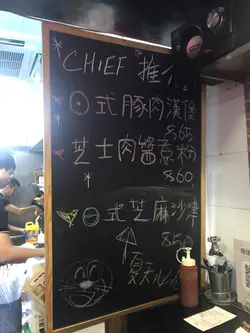 CHIEF「推介
日式豚肉漢堡
$65
芝士肉醬意粉
$60
日式芝麻沙律
$50
夏天必